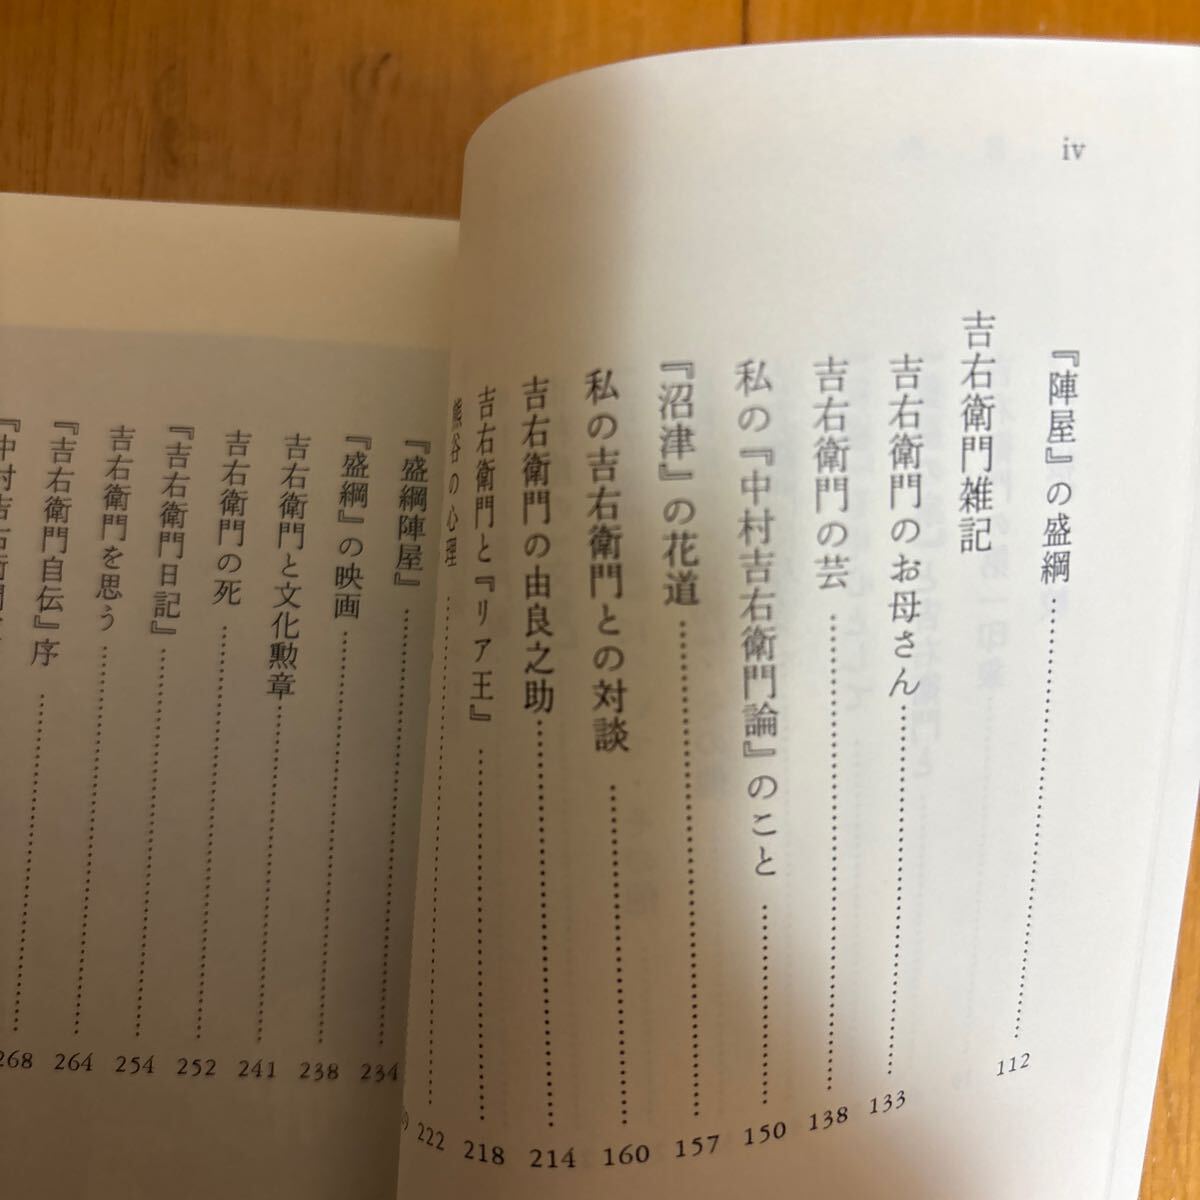 iv
『陣屋』の盛綱……112
吉右衛門雑記
吉右衛門のお母さん……133
吉右衛門の芸……138
私の『中村吉右衛門論』のこと……150
『沼津』の花道……157
私の吉右衛門との対談……160
吉右衛門の由良之助……214
吉右衛門と『リア王』……218
熊谷の心理……222
『盛綱陣屋』……234
『盛綱』の映画……238
吉右衛門と文化勲章……241
吉右衛門の死……252
『吉右衛門日記』……254
吉右衛門を思う……264
『吉右衛門自伝』序……268
『中村吉右衛門